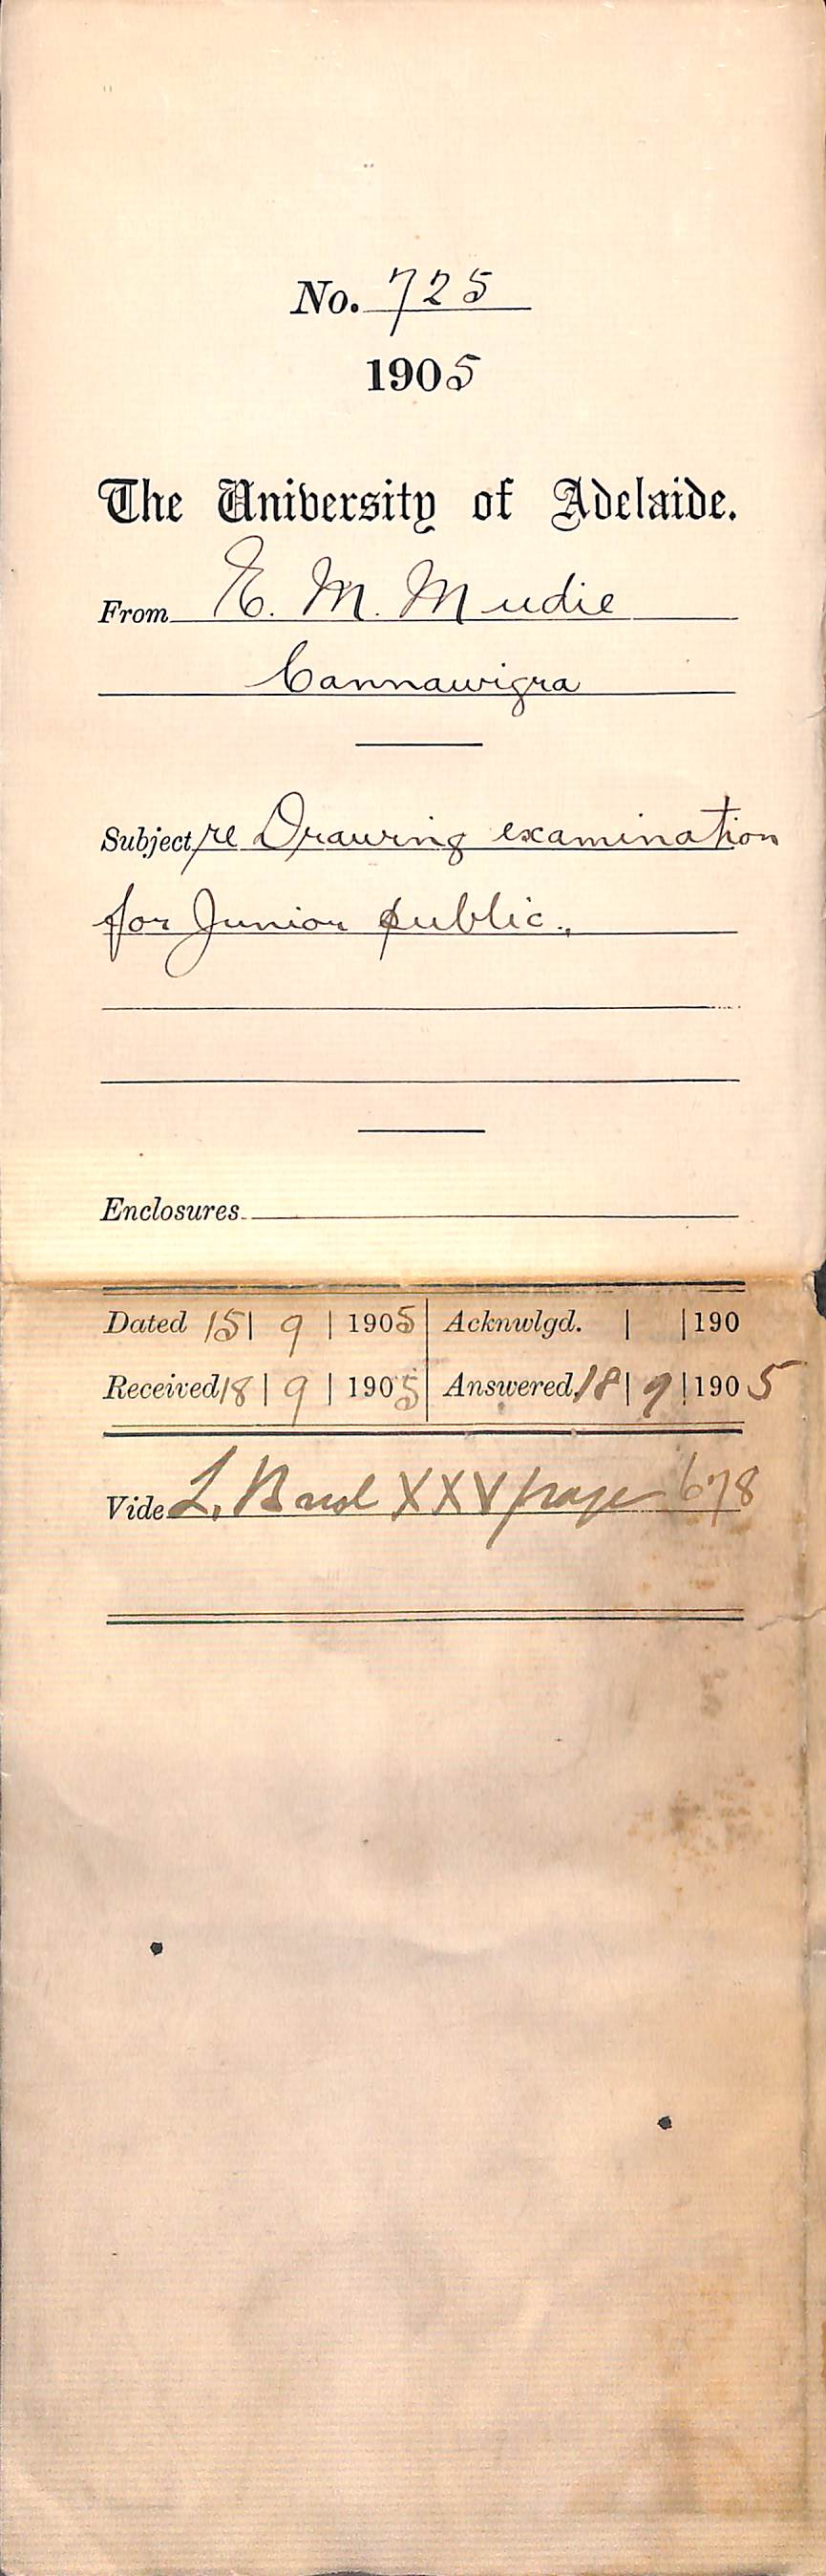 No. 725
1905
The University of Adelaide.
From E. M. Mudie
Cannawigra
Subject re Drawing examination
for Junior public.
Enclosures
Dated 15 | 9 | 1905 Acknwlgd. | | 190
Received 18 | 9 | 1905 Answered 18 | 9 | 1905
Vide L. XXV page 678